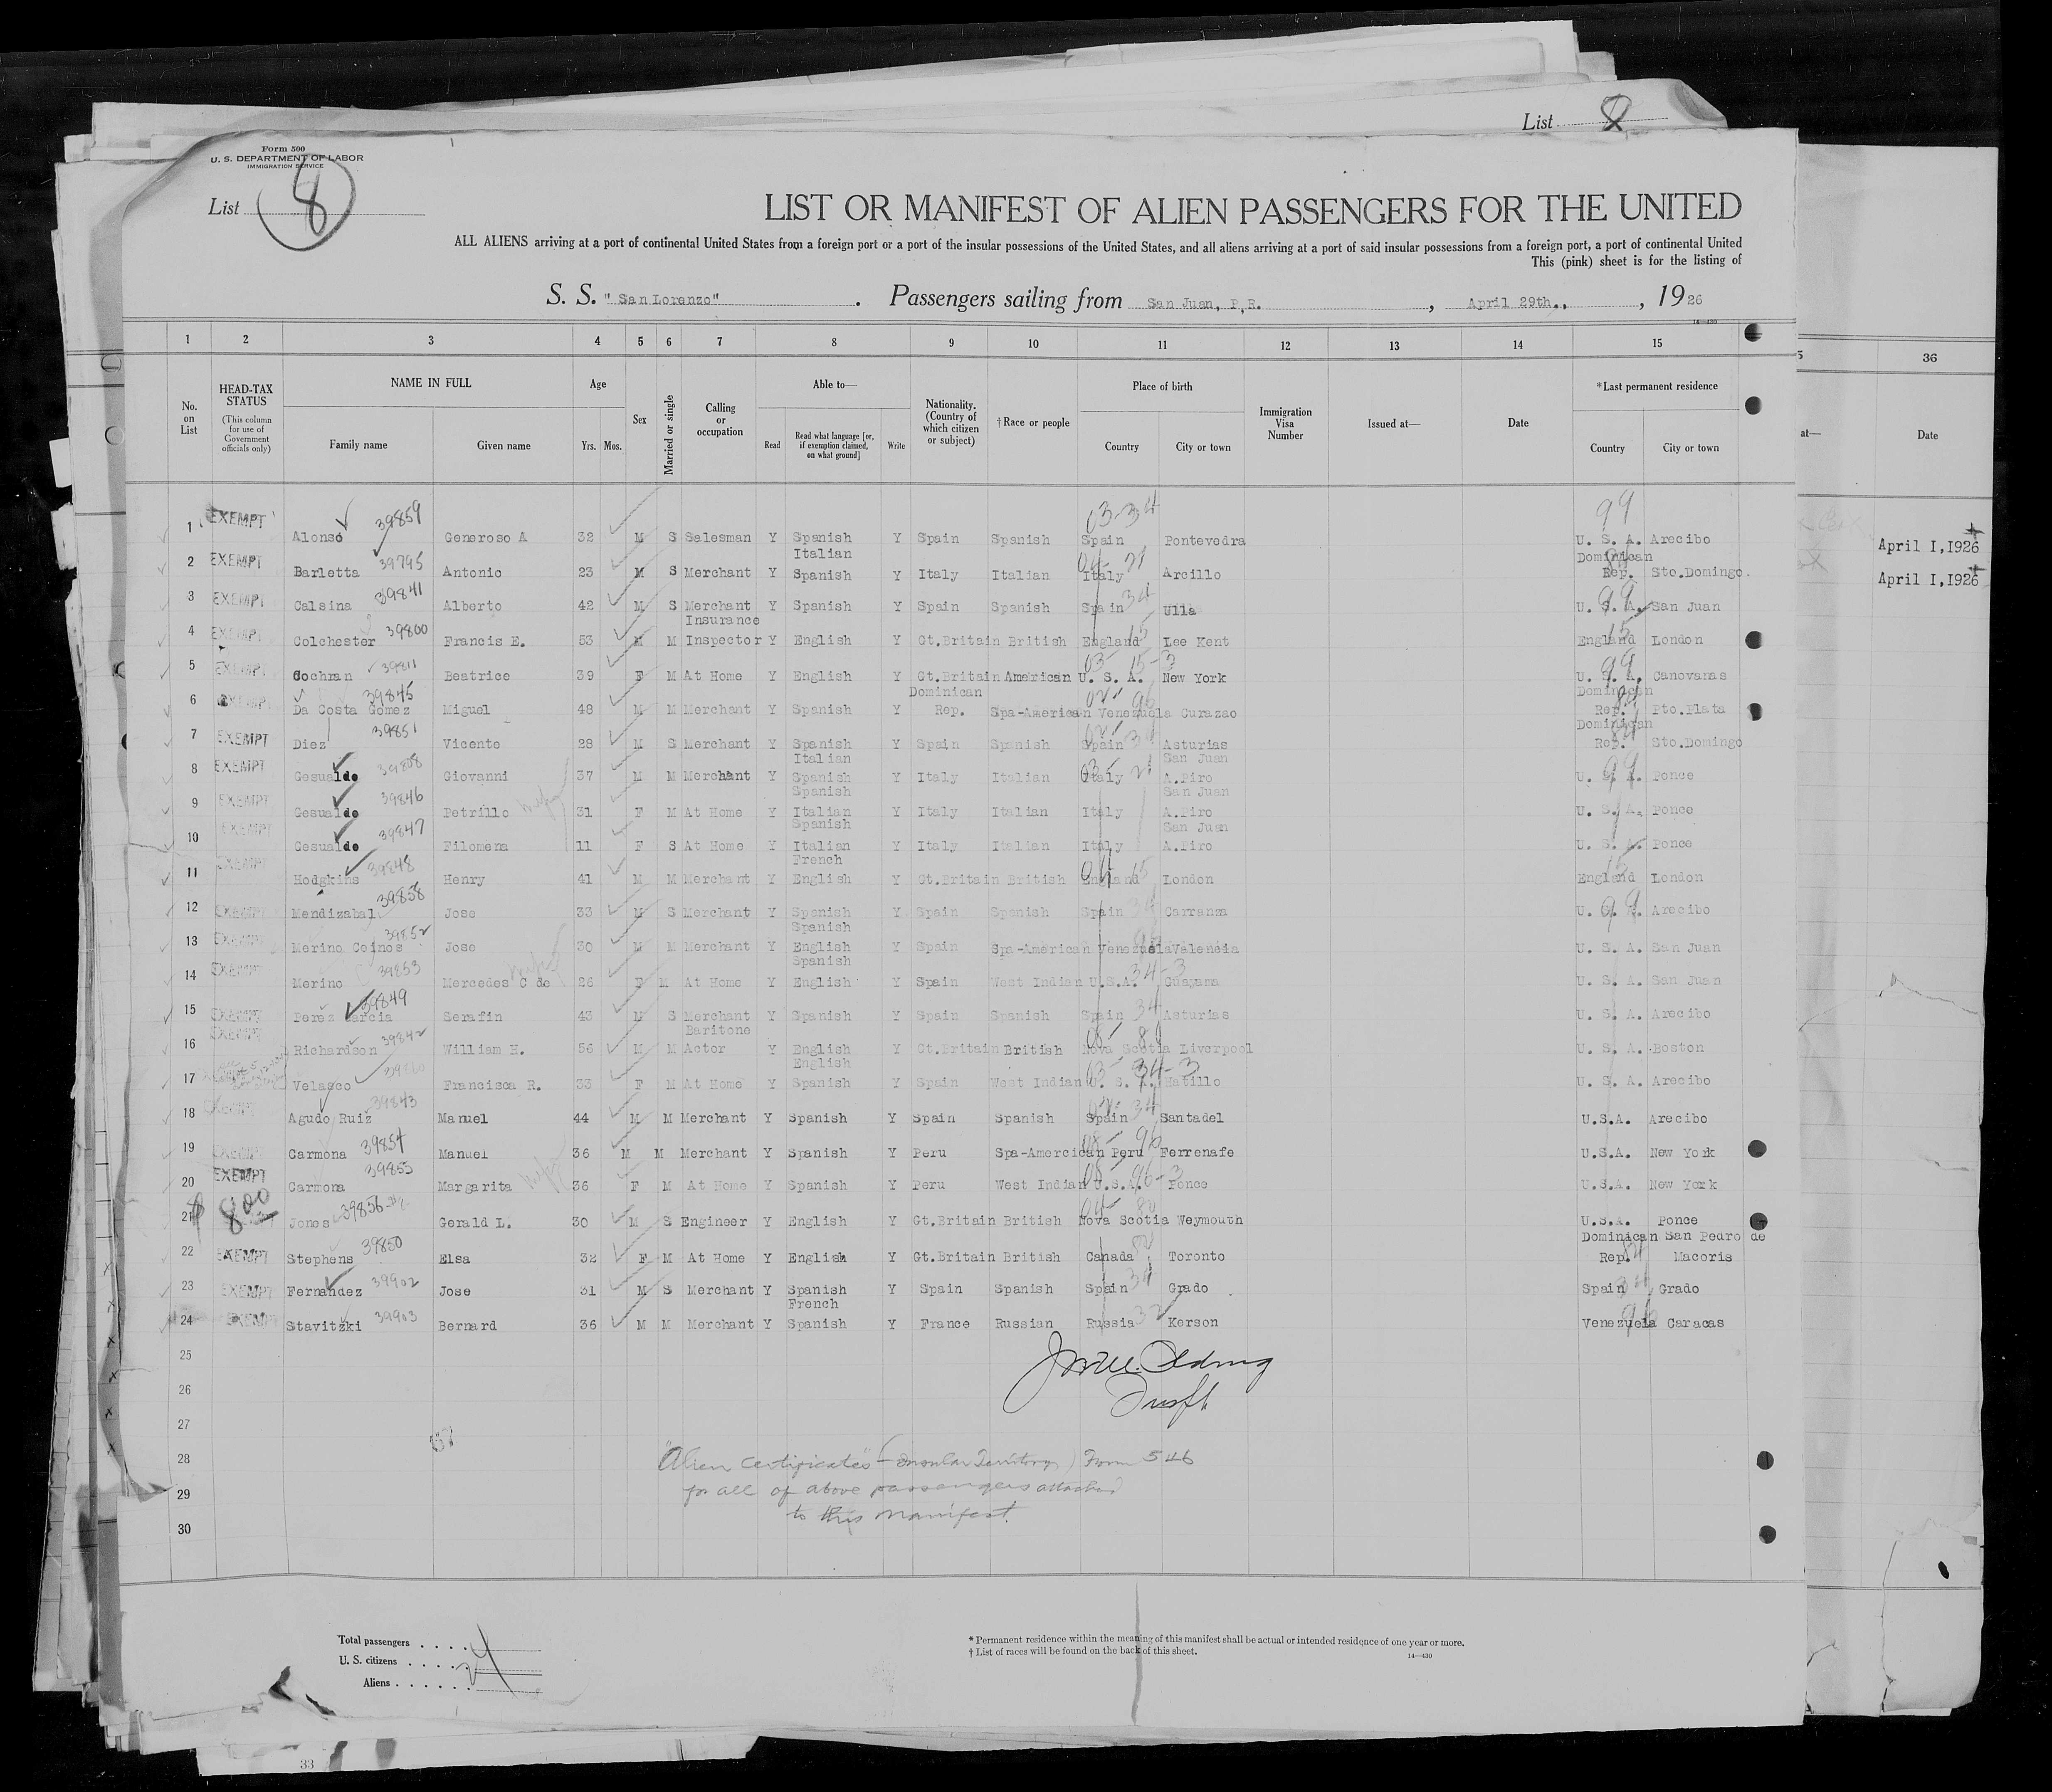 List 8
Form 500
U. S. DEPARTMENT OF LABOR
IMMIGRATION SERVICE
List 8
LIST OR MANIFEST OF ALIEN PASSENGERS FOR THE UNITED
ALL ALIENS arriving at a port of continental United States from a foreign port or a port of the insular possessions of the United States, and all aliens arriving at a port of said insular possessions from a foreign port, a port of continental United
This (pink) sheet is for the listing of
S. S. "San Lorenzo" . Passengers sailing from San Juan, P.R. , April 29th., , 1926
14—430
1 2 3 4 5 6 7 8 9 10 11 12 13 14 15 36
No. on List
HEAD-TAX STATUS (This column for use of Government officials only)
NAME IN FULL Family name Given name
Age Yrs. Mos.
Sex
Married or single
Calling or occupation
Able to— Read Read what language [or, if exemption claimed, on what ground] Write
Nationality. (Country of which citizen or subject)
†Race or people
Place of birth Country City or town
Immigration Visa Number
Issued at—
Date
*Last permanent residence Country City or town
at— Date
1 EXEMPT Alonso 39859 Generoso A 32 M S Salesman Y Spanish Y Spain Spanish Spain 03-34 Pontevedra 99 U. S. A. Arecibo April 1,1926
2 EXEMPT Barletta 39795 Antonio 23 M S Merchant Y Italian Spanish Y Italy Italian Italy 04 21 Arcillo Dominican Rep. Sto.Domingo. April 1,1926
3 EXEMPT Calsina 39841 Alberto 42 M S Merchant Y Spanish Y Spain Spanish Spain 34 Ulla 99 U. S. A. San Juan
4 EXEMPT Colchester 39800 Francis E. 53 M M Insurance Inspector Y English Y Gt.Britain British England 15 Lee Kent England 15 London
5 EXEMPT Cochran 39811 Beatrice 39 F M At Home Y English Y Gt.Britain American U. S. A. 03- 15-3 New York 99 U. S. A. Canovanas
6 EXEMPT Da Costa Gomez 39845 Miguel 48 M M Merchant Y Spanish Y Dominican Rep. Spa-American Venezuela 96 Curazao Dominican Rep. Pto.Plata
7 EXEMPT Diez 39851 Vicente 28 M S Merchant Y Spanish Y Spain Spanish Spain 34 Asturias Dominican Rep. Sto.Domingo
8 EXEMPT Gesualdo 39808 Giovanni 37 M M Merchant Y Italian Spanish Y Italy Italian Italy 03- 21 San Juan A.Piro 99 U. S. A. Ponce
9 EXEMPT Gesualdo 39846 Petrillo 31 F M At Home Y Spanish Italian Y Italy Italian Italy San Juan A.Piro U. S. A. Ponce
10 EXEMPT Gesualdo 39847 Filomena 11 F S At Home Y Spanish Italian Y Italy Italian Italy San Juan A.Piro U. S. A. Ponce
11 EXEMPT Hodgkins 39848 Henry 41 M M Merchant Y French English Y Gt.Britain British England 04 15 London England 15 London
12 EXEMPT Mendizabal 39858 Jose 33 M S Merchant Y Spanish Y Spain Spanish Spain 34 Carranza 99 U. S. A. Arecibo
13 EXEMPT Merino Ceinos 39852 Jose 30 M M Merchant Y Spanish English Y Spain Spa-American Venezuela Valencia U. S. A. San Juan
14 EXEMPT Merino 39853 Mercedes C de 26 F M At Home Y Spanish English Y Spain West Indian U.S.A. 34-3 Guayama U. S. A. San Juan
15 EXEMPT Perez Garcia 39849 Serafin 43 M S Merchant Y Spanish Y Spain Spanish Spain 34 Asturias U. S. A. Arecibo
16 EXEMPT Richardson 39842 William H. 56 M M Baritone Actor Y English Y Gt.Britain British Nova Scotia 08- 80 Liverpool U. S. A. Boston
17 Velasco Francisca R. 33 F M At Home Y English Spanish Y Spain West Indian U. S. A. 03- 34-3 Hatillo U. S. A. Arecibo
18 EXEMPT Agudo Ruiz 39843 Manuel 44 M M Merchant Y Spanish Y Spain Spanish Spain 34 Santadel U.S.A. Arecibo
19 EXEMPT Carmona 39854 Manuel 36 M M Merchant Y Spanish Y Peru Spa-Amercican Peru 08- 96 Ferrenafe U.S.A. New York
20 EXEMPT Carmona 39855 Margarita 36 F M At Home Y Spanish Y Peru West Indian U.S.A. 08- 96-3 Ponce U.S.A. New York
21 $ 8.00 Jones 39856 Gerald L. 30 M S Engineer Y English Y Gt.Britain British Nova Scotia 04- 80 Weymouth U.S.A. Ponce
22 EXEMPT Stephens 39850 Elsa 32 F M At Home Y English Y Gt.Britain British Canada Toronto Dominican Rep. San Pedro de Macoris
23 EXEMPT Fernandez 39902 Jose 31 M S Merchant Y Spanish Y Spain Spanish Spain 34 Grado Spain 34 Grado
24 EXEMPT Stavitzki 39903 Bernard 36 M M Merchant Y French Spanish Y France Russian Russia 32 Kerson Venezuela 96 Caracas
25
26
27
28
29
30
"Alien Certificates" - (Insular Territory) Form 546
for all of above passengers attached
to this manifest.
Total passengers
U. S. citizens
Aliens
24
* Permanent residence within the meaning of this manifest shall be actual or intended residence of one year or more.
† List of races will be found on the back of this sheet.
14—430
33